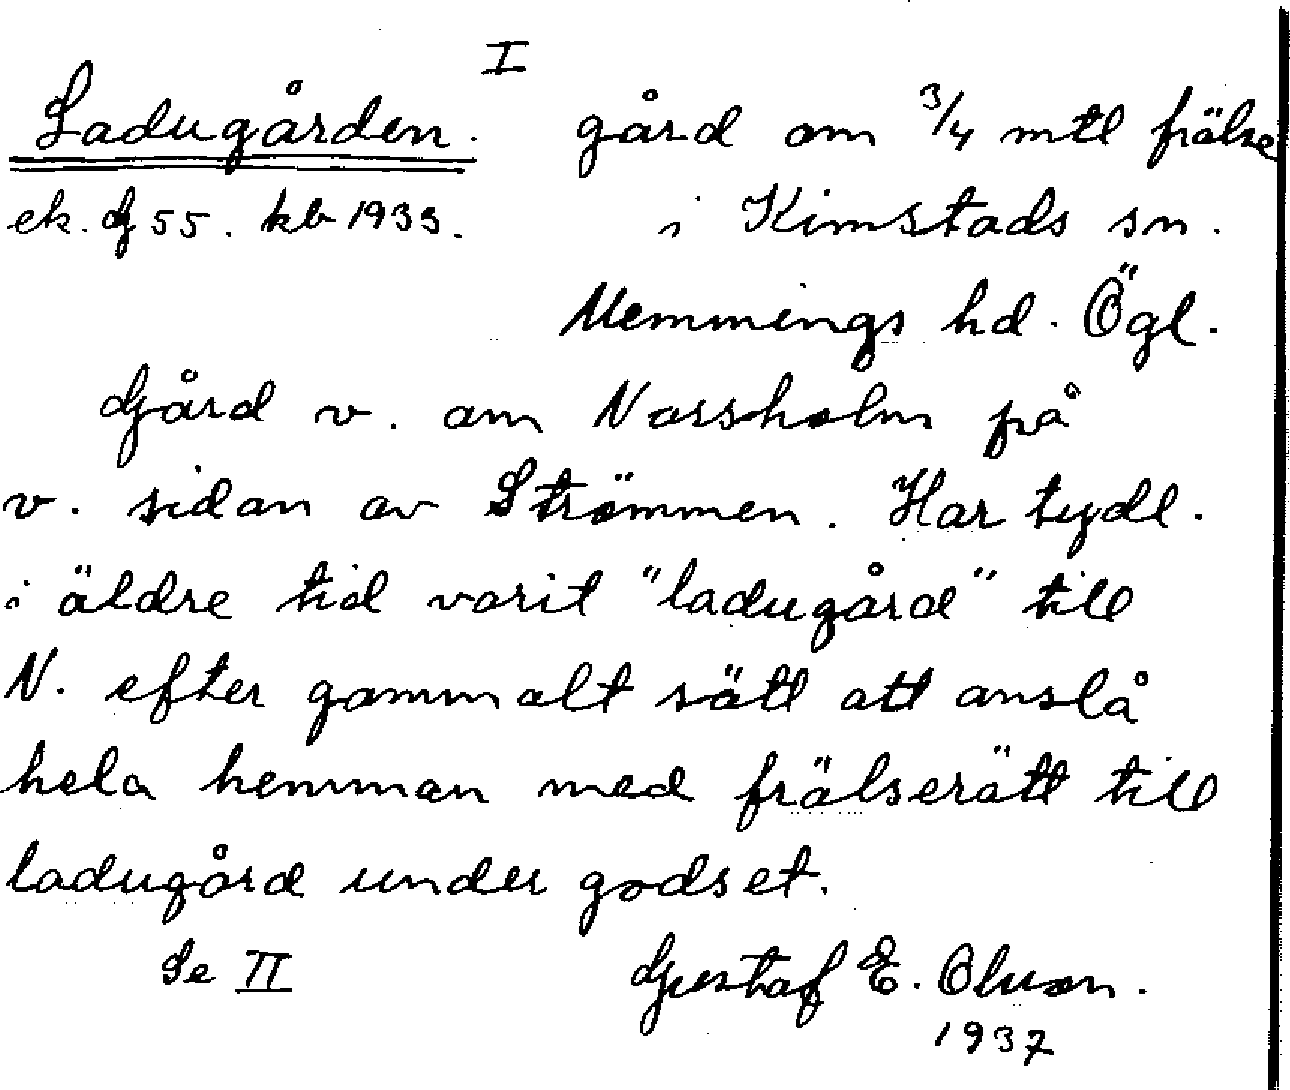 I
Ladugården. gård om 3/4 mtl frälse
ek. G 55. kb 1933. i Kimstads sn.
Memmings hd. Ögl.
Gård v. om Norsholm på
v. sidan av Strömmen. Har tydl.
i äldre tid varit "ladugård" till
N. efter gammalt sätt att anslå
hela hemman med frälserätt till
ladugård under godset.
Se II Gustaf E. Oluson.
1937